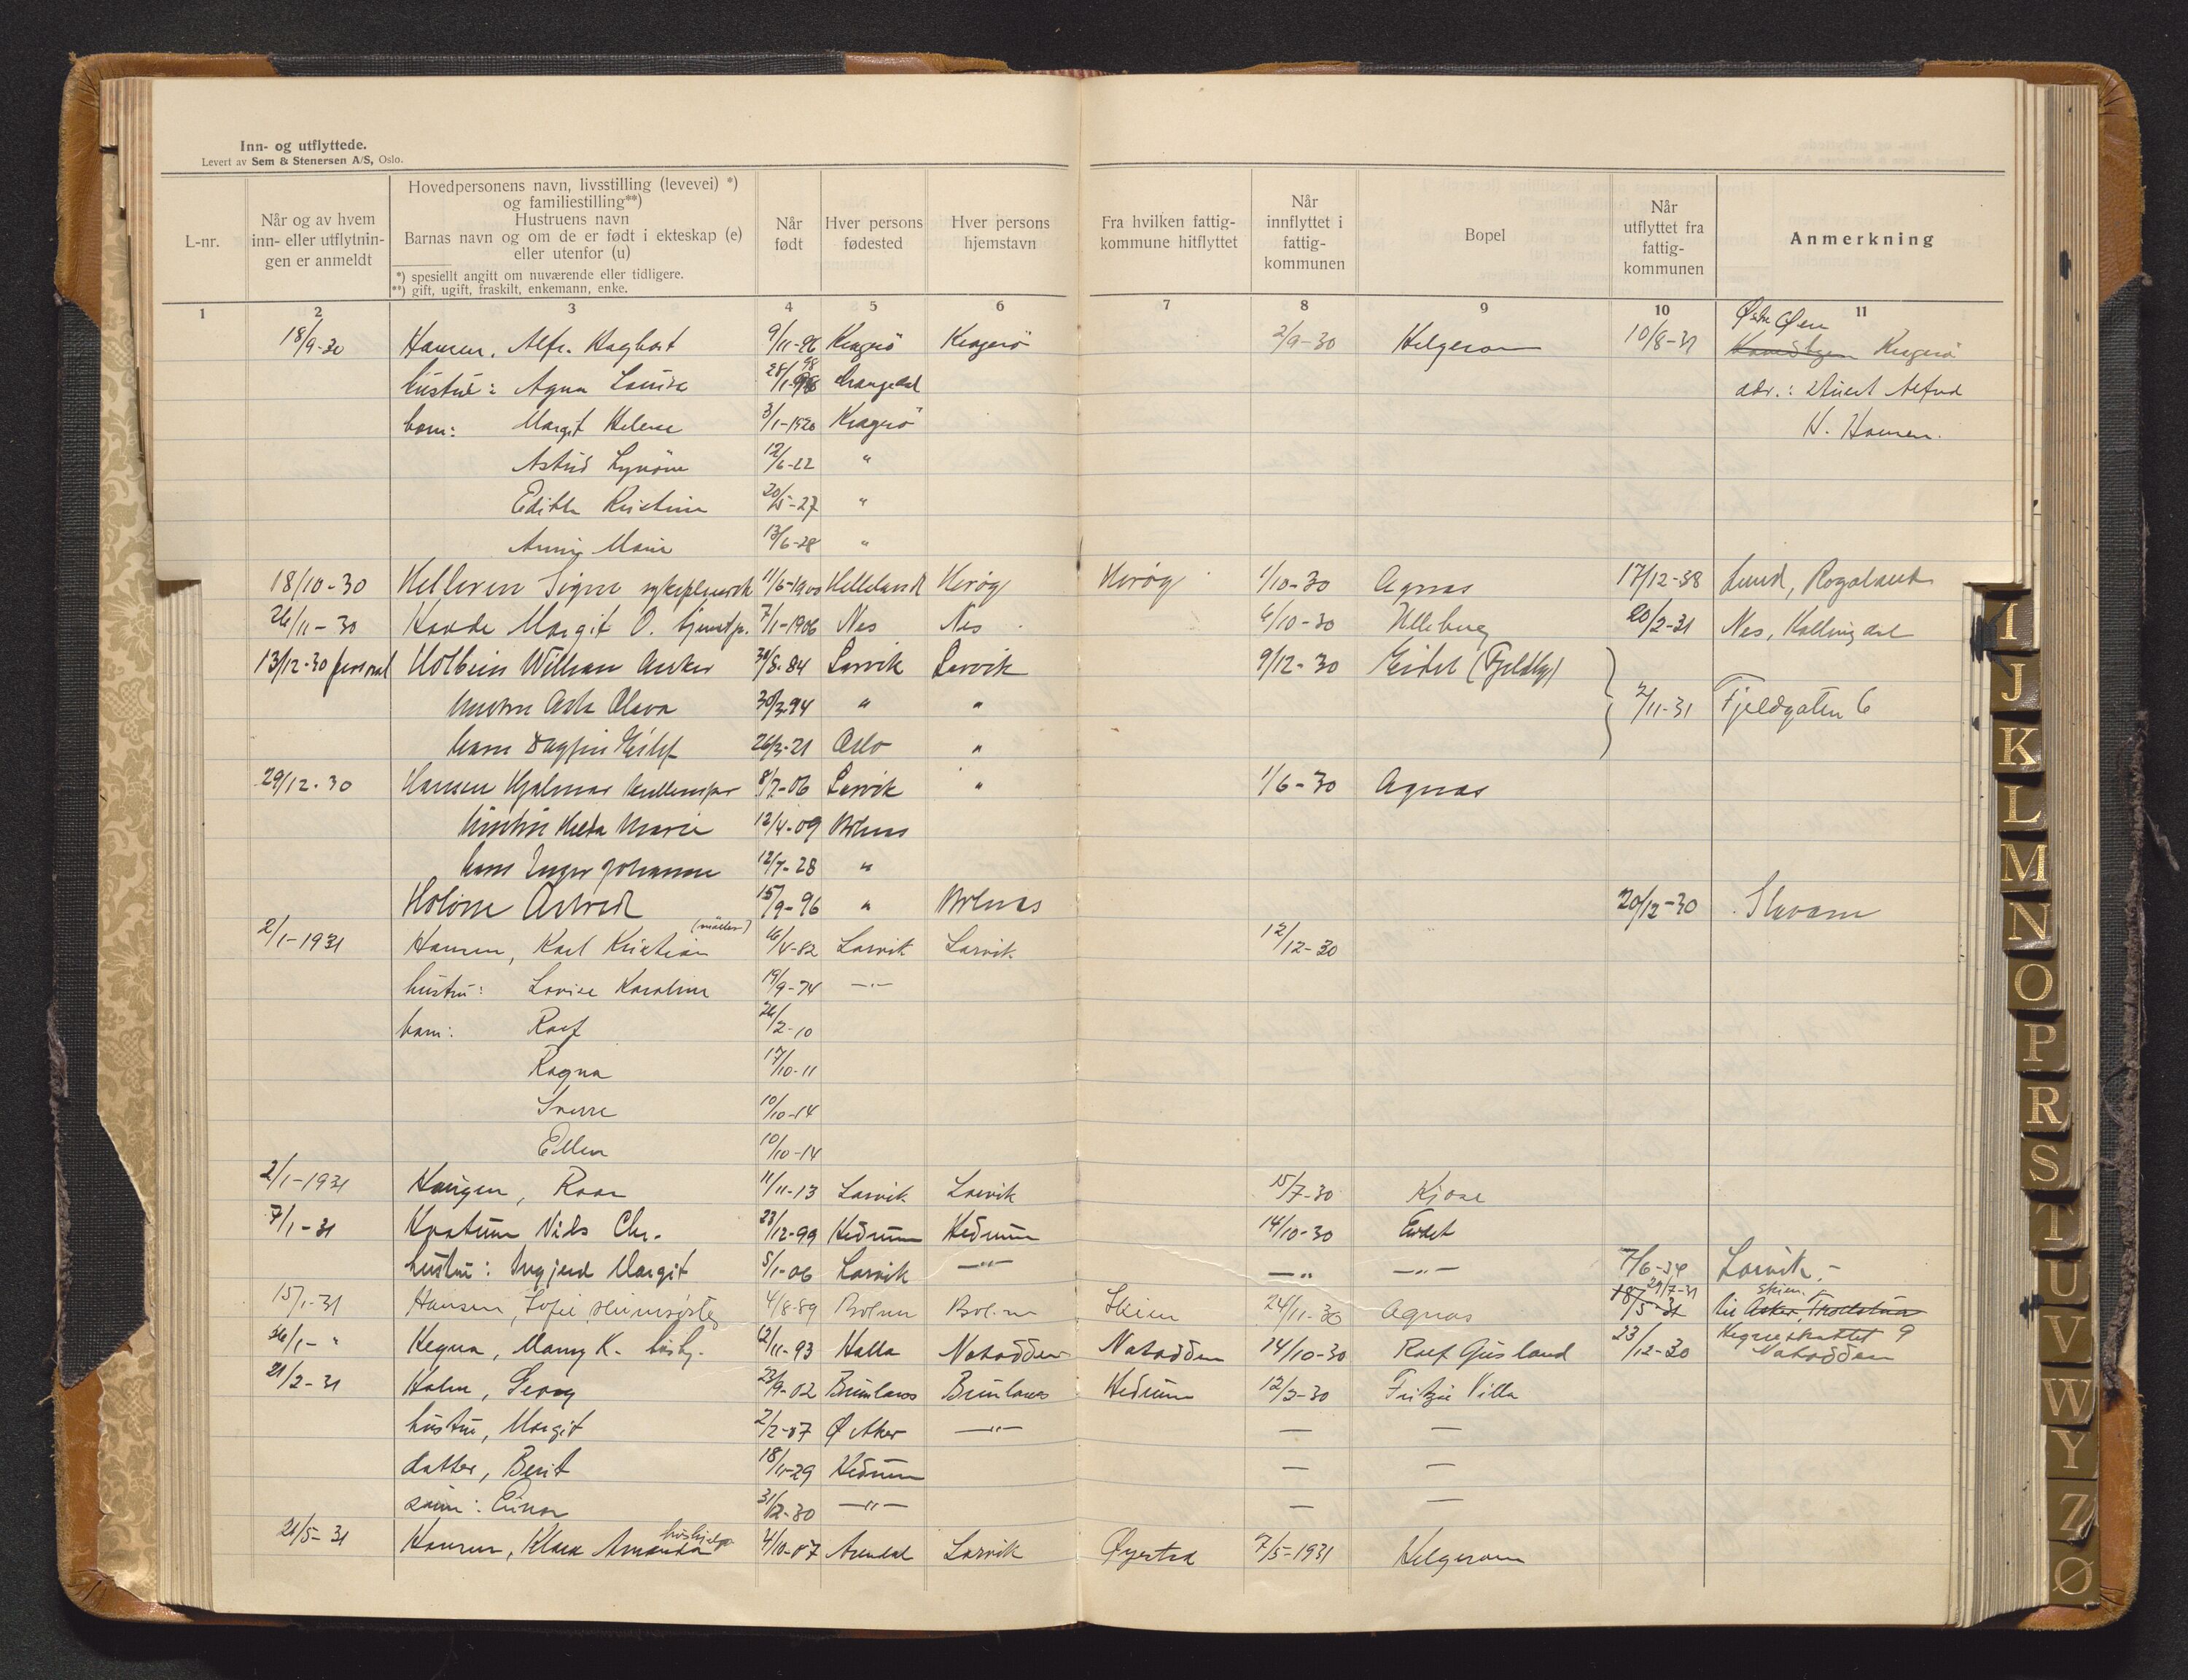 Inn- og utflyttede.
Levert av Sem & Stenersen A/S, Oslo.
L-nr.
Når og av hvem inn- eller utflytnin- gen er anmeldt
Hovedpersonens navn, livsstilling (levevei) *) og familiestilling**) Hustruens navn Barnas navn og om de er født i ekteskap (e) eller utenfor (u)
*) spesiellt angitt om nuværende eller tidligere.
**) gift, ugift, fraskilt, enkemann, enke.
Når født
Hver persons fødested
Hver persons hjemstavn
Fra hvilken fattig- kommune hitflyttet
Når innflyttet i fattig- kommunen
Bopel
Når utflyttet fra fattig- kommunen
Anmerkning
1 2 3 4 5 6 7 8 9 10 11
18/9-30 Hansen, Alfr. Hagbart 9/11-96 Kragerö Kragerö 2/9-30 Helgeroa 10/8-31 Kragerö
hustru: Agna Louise 28/1-98 Drangedal adr.: Alfred
barn: Margit Helene 3/1-1920 Kragerö H. Hansen.
Astrid 12/6-22 "
Edith Kristine 20/5-27 "
Anny Marie 13/6-28 "
18/10-30 Helleren Signe 11/6-1900 Helleland 1/10-30 Agnas 17/12-38 Lund, Rogaland
26/11-30 Margit O. 7/1-1906 Nes Nes 6/10-30 Ulleberg 20/2-31 Nes, Hallingdal
13/12-30 personal Holbein William Anker 30/8-84 Larvik Larvik 9/12-30 Eidet
hustru Olava 30/3-94 " " 2/11-31 Fjeldgaten 6
barn Dagfin 26/3-21 Oslo "
29/12-30 Hansen Hjalmar 8/7-06 Larvik " 1/6-30 Agnas
hustru Marie 12/4-09 Brlnas
barn Inger Johanne 12/7-28 "
Astrid 15/9-96 " Brlnas 20/12-30
2/1-1931 Hansen, Karl Kristian (møller) 16/4-82 Larvik Larvik 12/12-30
hustru: Lovise Karoline 19/9-74 —"—
barn: Rolf 26/2-10
Ragna 17/10-11
Sverre 10/10-14
Ellen 10/10-14
2/1-1931 Haugen, Roar 11/11-13 Larvik Larvik 15/7-30 Kjose
7/1-31 Nils Chr. 23/12-99 Hedrum Hedrum 14/10-30 Eidet
hustru: Margit 5/1-06 Larvik —"— —"— —"— 7/6-34 Larvik.-
15/1-31 Hansen, Sofie 4/8-89 Skien 24/11-30 Agnas 18/5-31 29/7-31 Skien.
26/1-" Hegna, Manny K. 12/11-93 Halla Notodden Notodden 14/10-30 Rolf Gusland 23/12-30 9 Notodden
21/2-31 Holm, Georg 23/9-02 Brunlanes Brunlanes Hedrum 12/3-30 Fritzøe Villa
hustru, Margit 2/2-07 Ø Aker —"— — —
datter, Berit 18/11-29 Hedrum — —
sønn: Einar 31/12-30 —"— — —
21/5-31 Hansen, Klara Amanda hushjelp 4/10-07 Arendal Larvik Øyestad 7/5-1931 Helgeroa
I
J
K
L
M
N
O
P
R
S
T
U
V
W
Y
Z
Ø